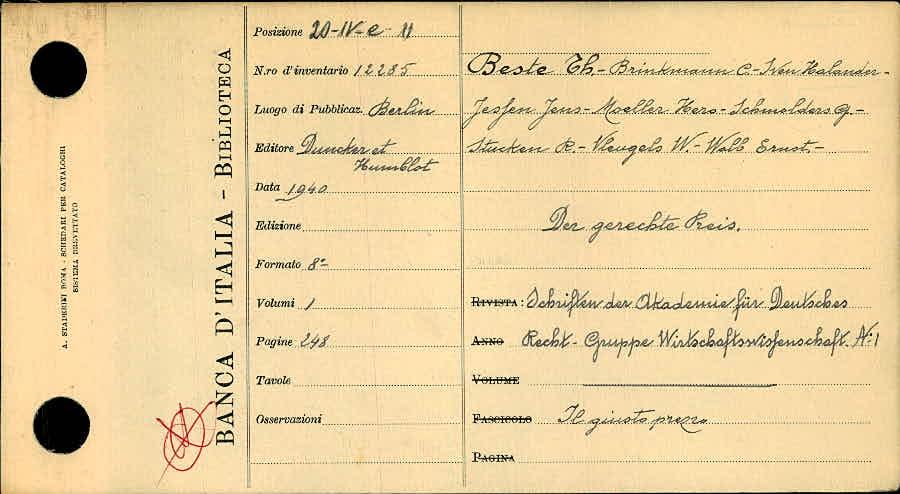 A. STADERINI ROMA - SCHEDARI PER CATALOGHI
SISTEMA BREVETTATO
BANCA D'ITALIA - BIBLIOTECA
Posizione 20-IV-e-11
N.ro d'inventario 12285
Luogo di Pubblicaz. Berlin
Editore Duncker et
Humblot
Data 1940
Edizione
Formato 8º
Volumi 1
Pagine 248
Tavole
Osservazioni
Beste Th- Brinkmann C- Iven Halander-
Jessen Jens- Moeller Hero- Schmölders G-
Stucken R.- Vleugels W.- Walb Ernst.-
Der gerechte Preis.
RIVISTA: Schriften der Akademie für Deutsches
ANNO Recht- Gruppe Wirtschaftswissenschaft. N:1
VOLUME
FASCICOLO Il giusto prezzo
PAGINA